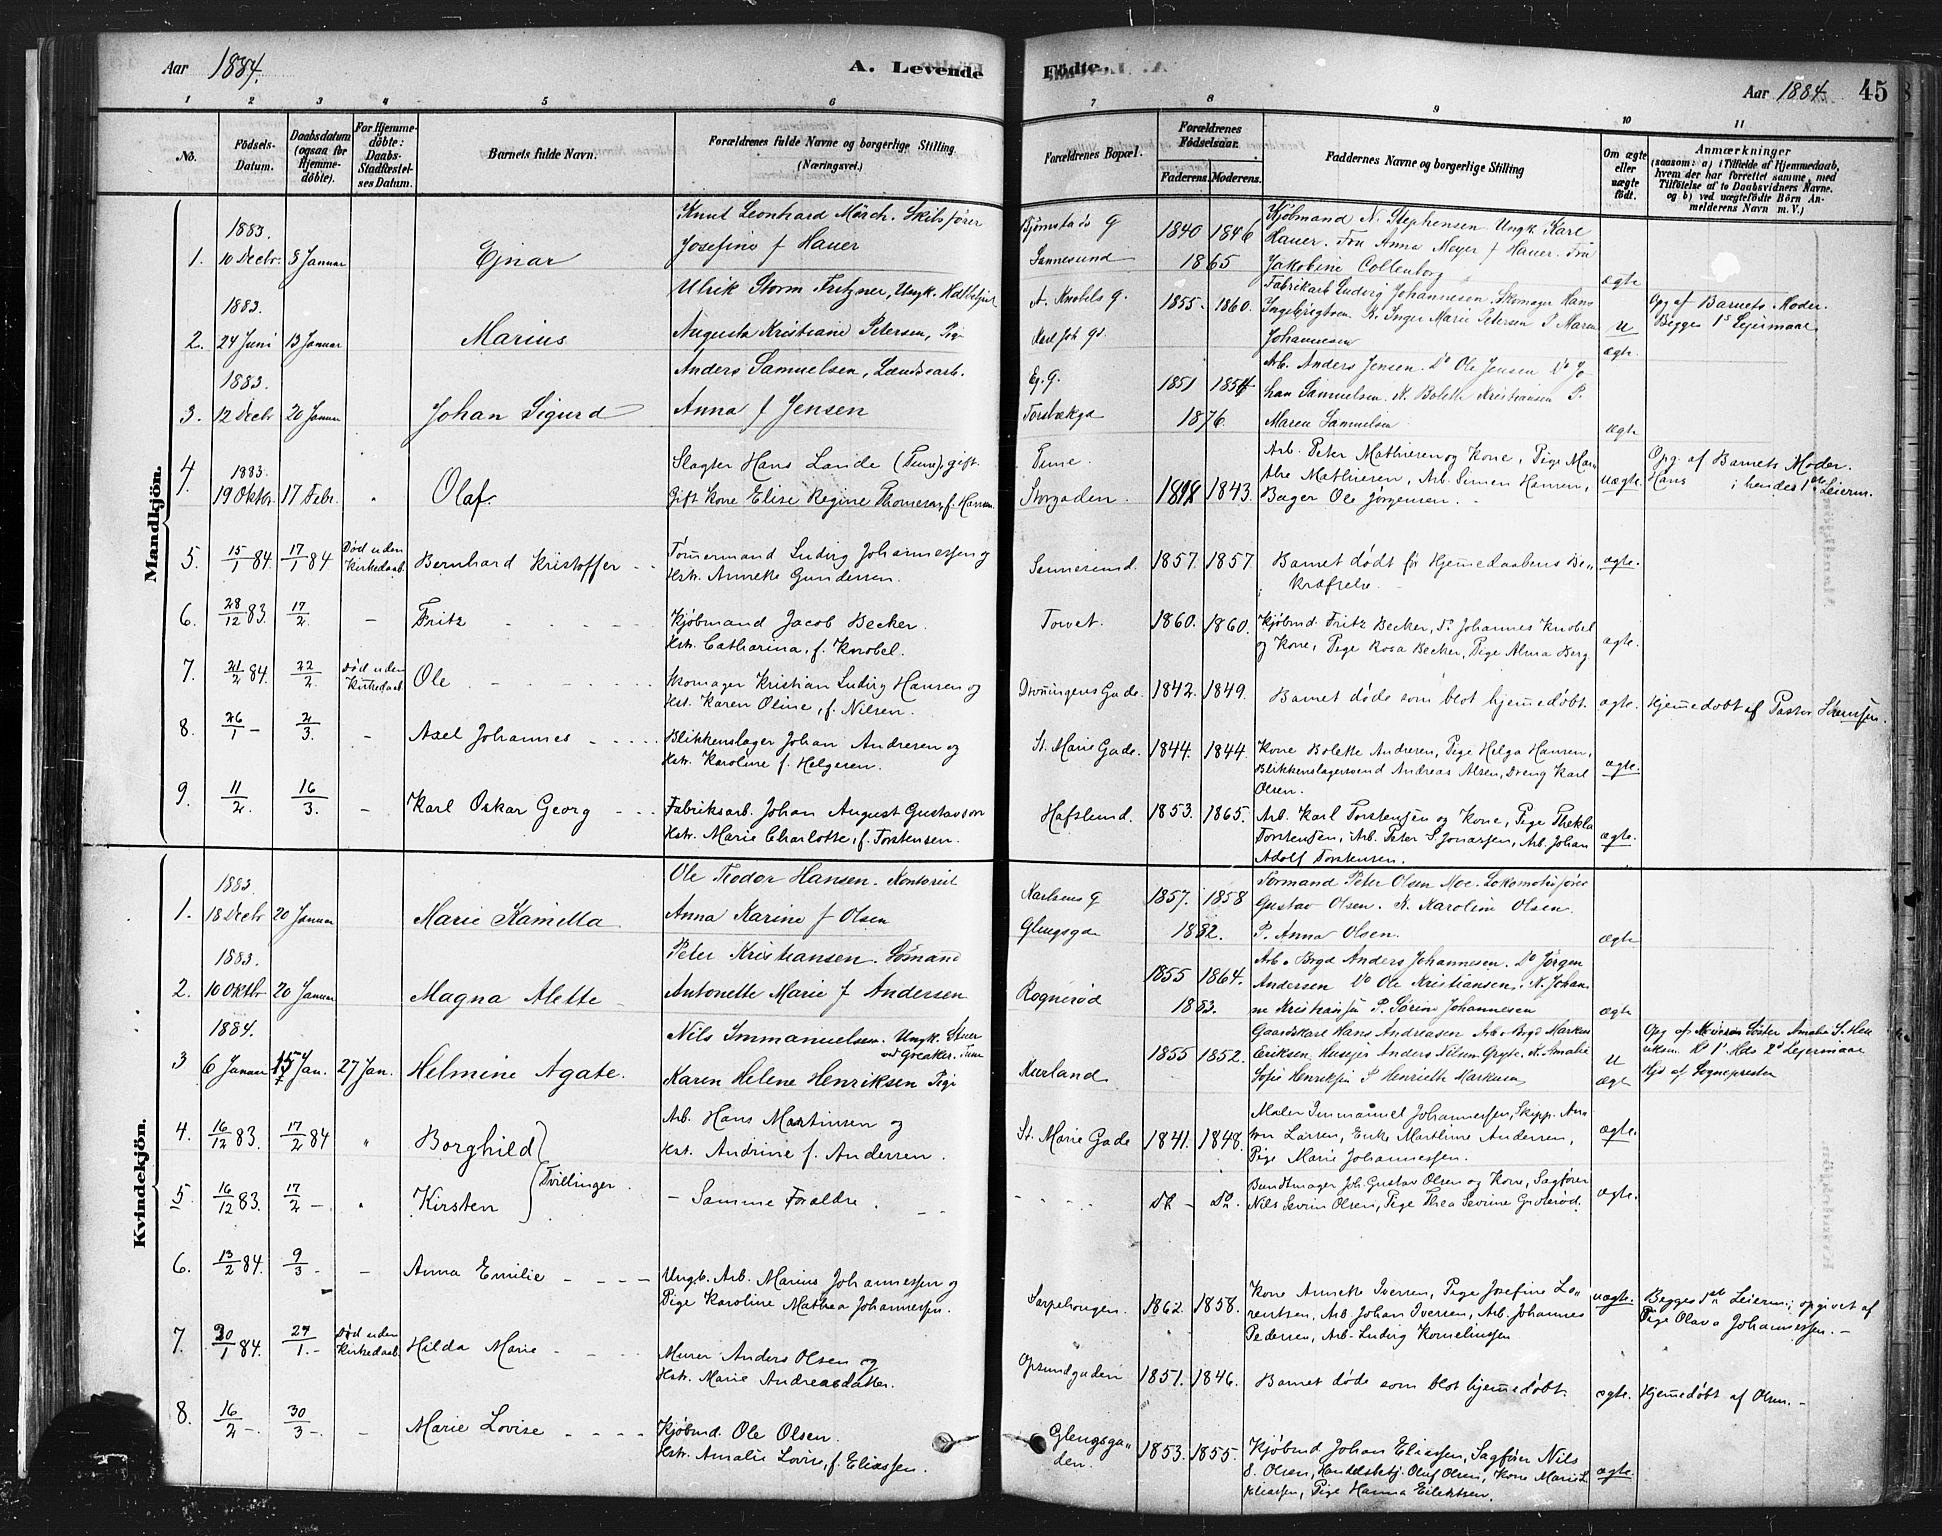 Aar 1884.
A. Levende
Fødte.
Aar 1884.
45
1 2 3 4 5 6
7 8 9 10 11
No.
Fødsels-Datum.
Daabsdatum (ogsaa for Hjemme-døbte).
For Hjemme-døbte: Daabs-Stadfæstel-ses Datum.
Barnets fulde Navn.
Forældrenes fulde Navne og borgerlige Stilling (Næringsvei.)
Forældrenes Bopæl.
Forældrenes Fødselsaar.
Faderens. Moderens.
Faddernes Navne og borgerlige Stilling
Om ægte eller uægte født.
Anmærkninger
(saasom: a) i Tilfælde af Hjemmedaab,
hvem der har forrettet samme, med
Tilføielse af to Daabsvidners Navne.
og b) ved uægtefødte Børn An-
melderens Navn m. V.)
Mandkjøn.
1883.
1. 10 Decbr. 8 Januar Ejnar
Knut Leonhard Mørch. Skibsfører
Josefine f Hauer
Sannesund
1840 1846
1865
Kjøbmand N. Stephensen Ungk. Karl
Hauer. Fru Anna Meyer f Hauer. Fru
Jakobine Collenborg
ægte
1883.
2. 24 Juni 13 Januar Marius
Ulrik Storm Fritzner, Ungk. Hdlbetjnt
Augusta Kristiane Petersen, Pige
A. Knobels g.
Karl Joh gd.
1855. 1860.
Fabrikarb Ludvig Johannesen. Skomager Hans
Ingebrigtsen K. Inger Marie Petersen P. Maren
Johannesen
u ægte.
Opg af Barnets Moder.
Begges 1s Lejermaal
1883.
3. 12 Decbr 20 Januar Johan Sigurd
Anders Samuelsen, Landsarb.
Anna f Jensen
Eg. g.
Torsbækgd
1851 1854
1876.
Arb. Anders Jensen. Do Ole Jensen Do Jo
han Samuelsen. K. Bolette Kristiansen P.
Maren Samuelsen
ægte
4. 1883. 19 Oktbr. 17 Febr. " Olaf.
Slagter Hans Lande (Tune) gift.
Gift Kone Elise Regine Thomesen, f. Hansen.
Tune.
Storgaden.
1843.
Arb. Peter Mathiesen og Kone, Pige Mar
the Mathiesen, Arb. Simen Hansen,
Bager Ole Jørgensen.
uægte.
Opg. af Barnets Moder.
Hans i hendes 1ste Leierm.
5. 15/1 84. 17/1 84 Død uden Kirkedaab. Bernhard Kristoffer
Tømmermand Ludvig Johannessen og
Hstr. Anneke Gundersen.
Sannesund.
1857. 1857
Barnet dødt før Hjemmedaabens Be-
kræftelse
ægte.
6. 28/12 83. 17/2. — Fritz
Kjøbmand Jacob Becker.
Hstr. Catharina, f. Knobel.
Torvet.
1860. 1860.
Kjøbmd. Fritz Becker, Do Johannes Knobel
og Kone, Pige Rosa Becker, Pige Alma Berg
ægte.
7. 21/2 84. 22/2. Død uden Kirkedaab Ole
Skomager Kristian Ludvig Hansen og
Hst. Karen Oline, f. Nilsen.
Dronningens Gade.
1842. 1849.
Barnet døde som blot hjemmedøbt.
ægte.
Hjemmedøbt af Pastor Sørenssen.
8. 26/1 — 2/3 - Axel Johannes
Blikkenslager Johan Andresen og
Hstr. Karoline f. Helgesen.
St. Marie Gade.
1844. 1844.
Kone Bolette Andresen, Pige Helga Hansen,
Blikkenslagersvend Andreas Alsen, Dreng Karl
Olsen.
ægte.
9. 11/2. 16/3. - Karl Oskar Georg
Fabriksarb. Johan August Gustavson
Hstr. Marie Charlotte, f. Torstensen.
Hafslund.
1853. 1865.
Arb. Karl Torstensen og Kone, Pige Thekla
Torstensen, Arb. Peter S. Jonassen, Arb. Johan
Adolf Torstensen.
ægte.
Kvindekjøn.
1883.
1. 18 Decbr 20 Januar Marie Kamilla
Ole Teodor Hansen. Kontorist
Anna Karine f Olsen
Karlsens g
Glengsgd
1857. 1858
1882.
Formand Peter Olsen Moe. Lokomotivfører
Gustav Olsen. K. Karoline Olsen.
P. Anna Olsen.
ægte
1883.
2. 10 Oktbr 20 Januar Magna Alette
Peter Kristiansen. Sømand
Antonette Marie f Andersen
Rognerød
1855 1864.
1883.
Arb. Bogd Anders Johannesen. Do Jørgen
Andersen Do Ole Kristiansen. K. Johan
ne Kristiansen P. Sørine Johannesen
ægte
1884.
3 6 Januar 15 Jan. 27 Jan. Helmine Agate.
Nils Immanuelsen. Ungk. Stuer
ved Greaker. Tune
Karen Helene Henriksen Pige
Kurland
1855 1852.
Gaardskarl Hans Andreasen Arb. Bogd Markus
Eriksen. Husejer Anders Nilsen Gryte. K. Amalie
Sofie Henriksen P Henriette Markusen
u ægte
Opg af Søster Amalie S. Hen
riksen. Hs 1s Hds 2d Lejermaal
Hjd af Sognepresten
4. 16/12 83. 17/2 84 " Borghild
Arb. Hans Martinsen og
Hst. Andrine f. Andersen.
St. Marie Gade
1841. 1848.
Maler Immanuel Johannessen, Skipp. An-
ton Larsen, Enke Martine Andersen,
Pige Marie Johannessen.
ægte.
5 16/12 83. 17/2 — " Kirsten
Tvillinger.
— Samme Forældre.
Do — Do.
Bundtmager Joh. Gustav Olsen og Kone, Sagfører
Nils Severin Olsen, Pige Thea Sevrine Grøterød.
ægte.
6. 13/2 84. 9/3 - — Anna Emilie
Ungk. Arb. Marius Johannessen og
Pige Karoline Mathea Johannessen.
Sarpehougen.
1862. 1858.
Kone Anneke Iversen, Pige Josefine Lo-
rentsen, Arb. Johan Iversen, Arb. Johannes
Pedersen, Arb. Ludvig Kornelinssen
uægte.
Begges 1ste Leierm.; opgivet af
Pige Olava Johannessen. —
7. 20/1 84. 27/1. - Død uden Kirkedaab. Hilda Marie
Murer Anders Olsen og
Hstr. Marie Andreasdatter.
Opsundgaden
1851. 1846.
Barnet døde som blot hjemmedøbt.
ægte.
Hjemmedøbt af Olsen. —
8. 16/2 —. 30/3 —. - Marie Lovise
Kjøbmd. Ole Olsen.
Hstr. Amalie Lovise, f. Eliassen.
Glengsga-
den.
1853. 1855.
Kjøbmd Johan Eliassen, Sagfører Nils
S. Olsen, Handelsbetj. Oluf Olsen, Kone Marie L.
Eliassen, Pige Hanna Eilertsen.
ægte.